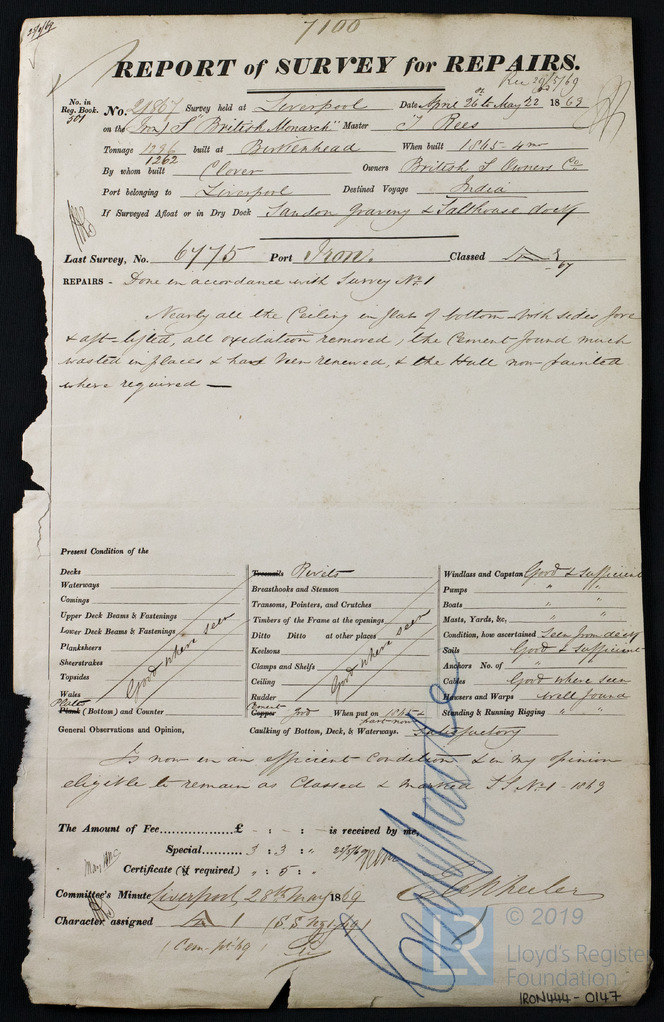 25/5/69
7100
REPORT of SURVEY for REPAIRS.
Rec 29/5/69
No. in Reg. Book. 301
No. 21867 Survey held at Liverpool Date April 26 to May 22 1869
on the Iron S "British Monarch" Master T Rees
Tonnage 1296 built at Birkenhead When built 1865 - 4 mo
1262
By whom built Clover Owners British S Owners Co
Port belonging to Liverpool Destined Voyage India
If Surveyed Afloat or in Dry Dock Sandon Graving & Salthouse dock
Last Survey, No. 6775 Port Iron. Classed A 67
REPAIRS - Done in accordance with Survey No 1
Nearly all the Ceiling in flat of bottom both sides fore
& aft lifted, all oxidation removed, the Cement found much
wasted in places & has been renewed, & the Hull now painted
where required —
Present Condition of the
Decks
Waterways
Comings
Upper Deck Beams & Fastenings
Lower Deck Beams & Fastenings
Planksheers
Sheerstrakes
Topsides
Wales
Good where seen
Plates
Plank (Bottom) and Counter
General Observations and Opinion,
Treenails Rivets
Breasthooks and Stemson
Transoms, Pointers, and Crutches
Timbers of the Frame at the openings
Ditto Ditto at other places
Keelsons
Clamps and Shelfs
Ceiling
Rudder
Good where seen
Cement
Copper good When put on 1865 &
part now
Caulking of Bottom, Deck, & Waterways. Satisfactory
Windlass and Capstan Good & sufficient
Pumps " "
Boats " "
Masts, Yards, &c, " "
Condition, how ascertained Seen from deck
Sails Good & sufficient
Anchors No. of "
Cables Good where seen
Hawsers and Warps Well found
Standing & Running Rigging " "
Is now in an efficient Condition & in my opinion
eligible to remain as Classed & marked S S No 1 - 1869
The Amount of Fee............... £ - : - : - is received by me,
Special.......... 3 : 3 : "
Certificate (if required) " : 5 : "
Committee's Minute Liverpool 28th May 1869
Character assigned A 1 (S S No 1 /69)
(Cem. pt. 69)
Wheeler
© 2019
LR
Lloyd's Register
Foundation
IRON444-0147